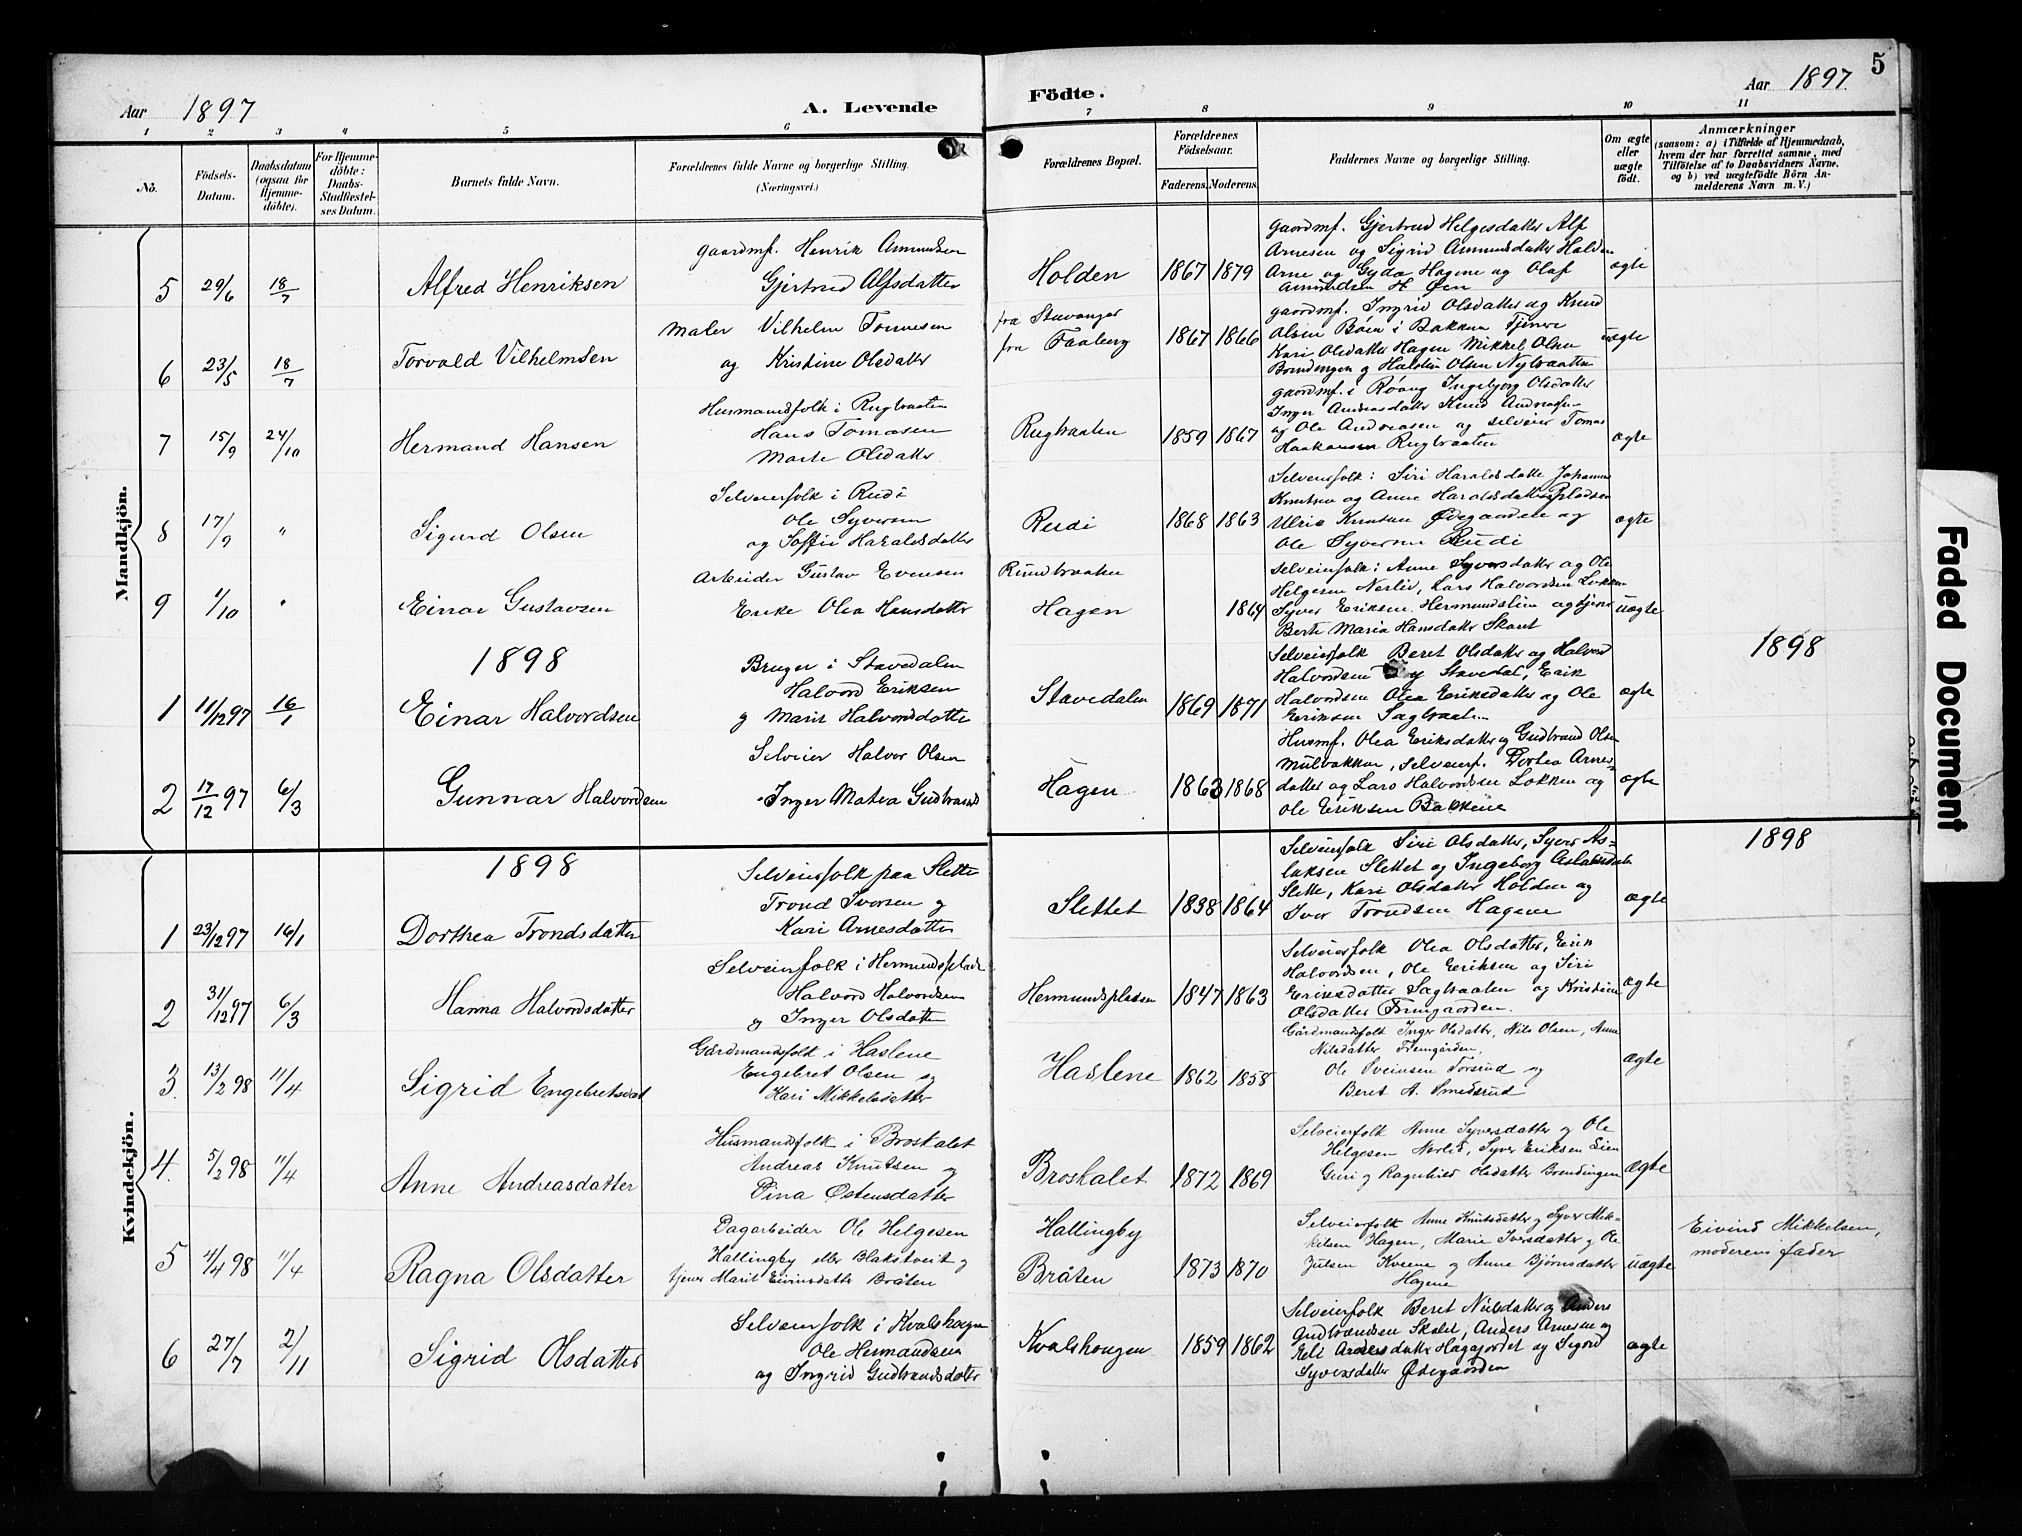 Aar 1897 A. Levende Födte. Aar 1897 5
1 2 3 4 5 6 7 8 9 10 11
No.
Födsels-Datum.
Daabsdatum (ogsaa for Hjemme-döbte).
For Hjemme-döbte: Daabs-Stadfæstel-ses Datum.
Barnets fulde Navn.
Forældrenes fulde Navne og borgerlige Stilling.
(Næringsvei.)
Forældrenes Bopæl.
Forældrenes Födselsaar.
Faderens. Moderens.
Faddernes Navne og borgerlige Stilling.
Om ægte eller uægte födt.
Anmærkninger
(saasom: a) i Tilfælde af Hjemmedaab, hvem der har forrettet samme, med Tilföielse af to Daabsvidners Navne, og b) ved uægtefödte Börn An-melderens Navn m. V.)
Mandkjön.
5 29/6 18/7 Alfred Henriksen
gaardmf. Henrik Amundsen
Gjertrud Alfsdatter
Holden 1867 1879
gaardmf. Gjertrud Helgesdatter Alf
Arnesen og Sigrid Amundsdatter Holden
Arne og Gyda Hagene og Olaf
Amundsen H. Øen
ægte
6 23/5 18/7 Torvald Vilhelmsen
Maler Vilhelm Tonnesen
og Kristine Olsdatter
fra Stavanger
fra Faaberg
1867 1866
gaardmf. Ingrid Olsdatter og Knud
Olsen Böen i Bakken Tjener
Kari Olsdatter Hagen Mikkel Olsen
Brendengen og Halstein Olsen Nybraaten
uægte
7 15/9 24/10 Hermand Hansen
Husmandsfolk i Rugbraaten
Hans Tomasen
Marte Olsdatter
Rugbraaten 1859 1867
gaardmf. i Røang Ingeborg Olsdatter
Inger Andreasdatter Knud Andreasen
og Ole Andreasen og selveier Tomas
Haakonsen Rugbraaten
ægte
8 17/9 " Sigurd Olsen
Selveierfolk i Rudi
Ole Syversen
og Soffie Haraldsdatter
Rudi 1868 1863
Selveierfolk: Siri Haraldsdatter Johannes
Knutsen og Anne Haraldsdatter Pladsen
Ulrik Knutsen Ødegaarden og
Ole Syversen Rudi
ægte
9 1/10 " Einar Gustavsen
Arbeider Gustav Evensen
Enke Olea Hansdatter
Rundbraaten
Hagen 1864
Selveierfolk: Anne Syversdatter og Ole
Helgesen Nerlie, Lars Halvordsen Løkken
Syver Eriksen Hermundslien og tjener
Berte Maria Hansdatter Skaret
uægte
1898 1898
1 11/12 97 16/1 Einar Halvordsen
Bruger i Stavedalen
Halvord Eriksen
og Marit Halvorsdatter
Stavedalen 1869 1871
Selveierfolk Beret Olsdatter og Halvord
Halvordsen og Stavedal, Erik
Halvordsen Olea Eriksdatter og Ole
Eriksen Sagbraaten
ægte
2 17/12 97 6/3 Gunnar Halvordsen
Selveier Halvor Olsen
Inger Matea Gudbrandsd
Hagen 1863 1868
Husmf. Olea Eriksdatter og Gudbrand Olsen
Mulbakken, Selveierf. Dortea Arnes-
datter og Lars Halvordsen Løkken og
Ole Eriksen Bakkene
ægte
Kvindekjön.
1898 1898
1 23/12 97 16/1 Dorthea Trondsdatter
Selveierfolk paa Slette
Trond Iversen og
Kari Arnesdatter
Slettet 1838 1864
Selveierfolk Siri Olsdatter, Syver As-
laksen Slettet og Ingeborg Aslaksdatter
Slette, Kari Olsdatter Holden og
Iver Trondsen Hagene
ægte
2 31/12 97 6/3 Hanna Halvordsdatter
Selveierfolk i Hermundsplads
Halvord Halvordsen
og Inger Olsdatter
Hermundspladsen 1847 1863
Selveierfolk Olea Olsdatter, Erik
Halvordsen, Ole Eriksen og Siri
Eriksdatter Sagbraaten og Kristine
Olsdatter Fremgaarden.
ægte
3. 13/2 98 11/4 Sigrid Engebretsdat
Gårdmandsfolk i Haslene
Engebret Olsen og
Kari Mikkelsdatter
Haslene 1862 1858
Gårdmandsfolk Inger Olsdatter, Nils Olsen, Anne
Nilsdatter Fremgården,
Ole Sveinsen Torsrud og
Beret A. Smedsrud
ægte
4. 5/2 98 11/4 Anne Andreasdatter
Husmandsfolk i Broskalet
Andreas Knutsen og
Pina Østensdatter
Broskalet 1872 1869
Selveierfolk Anne Syversdatter og Ole
Helgesen Nerlid, Syver Eriksen Lien
Guri og Ragnhild Olsdatter Brendingen
ægte
5 4/4 98 11/4 Ragna Olsdatter
Dagarbeider Ole Helgesen
Hallingby eller Blakstveit og
tjener Marit Eivindsdatter Bråten
Hallingby
Bråten 1873 1870
Selveierfolk Anne Knutsdatter og Syver Mik-
kelsen Hagen, Marie Iversdatter og Ole
Julsen Kveene og Anne Bjørnsdatter
Hagene
uægte
Eivind Mikkelsen,
moderens fader
6 27/7 2/11 Sigrid Olsdatter
Selveierfolk i Kvalshaugen
Ole Hermandsen
og Ingrid Gudbrandsdatter
Kvalshougen 1859 1862
Selveierfolk Beret Nielsdatter og Anders
Gudbrandsen Skalet, Anders Arnesen og
Eeli Andersdatter Hagajordet og Sigrid
Syversdatter Ødegaarden
ægte
Faded Document